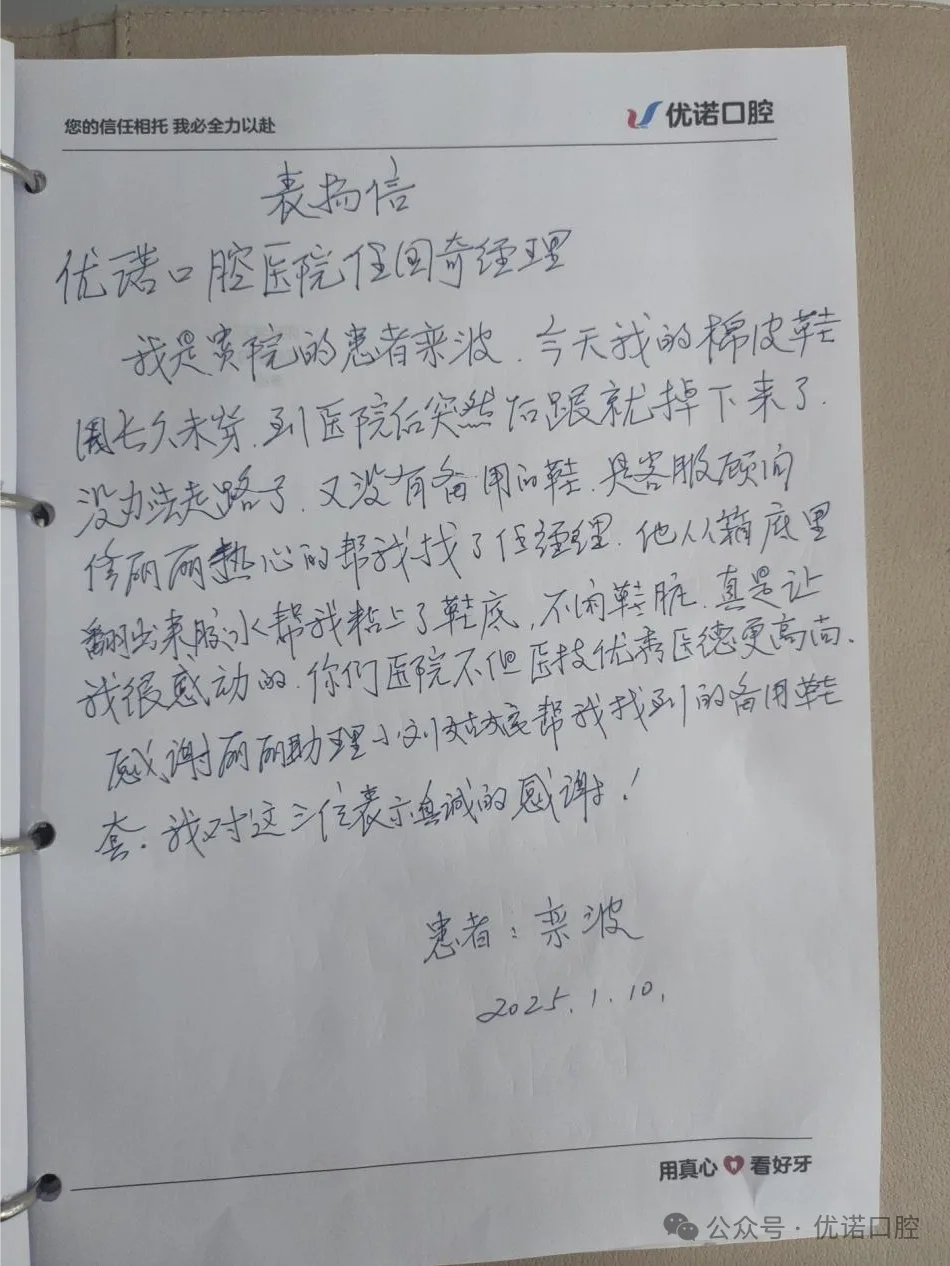 您的信任相托 我必全力以赴
优诺口腔
表扬信
优诺口腔医院任国奇经理
我是贵院的患者栾波.今天我的棉皮鞋
因长久未穿.到医院后突然后跟就掉下来了.
没办法走路了.又没有备用的鞋.是客服顾问
佟丽丽热心的帮我找了任经理.他从箱底里
翻出来胶水帮我粘上了鞋底,不闲鞋脏.真是让
我很感动的.你们医院不但医技优秀医德更高尚.
感谢丽丽助理小刘姑娘帮我找到的备用鞋
套.我对这三位表示真诚的感谢!
患者:栾波
2025.1.10.
用真心 看好牙
公众号·优诺口腔